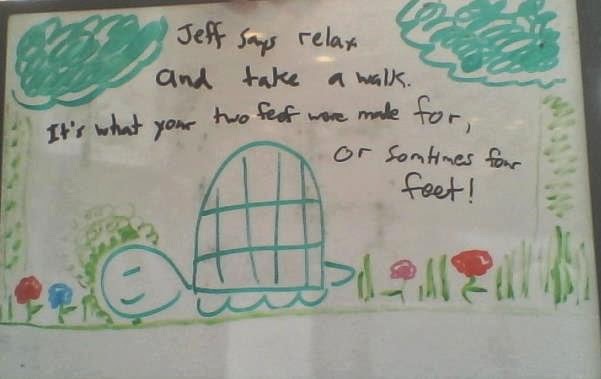 Jeff says relax
and take a walk.
It's what your two feet were made for,
or somtimes four
feet!